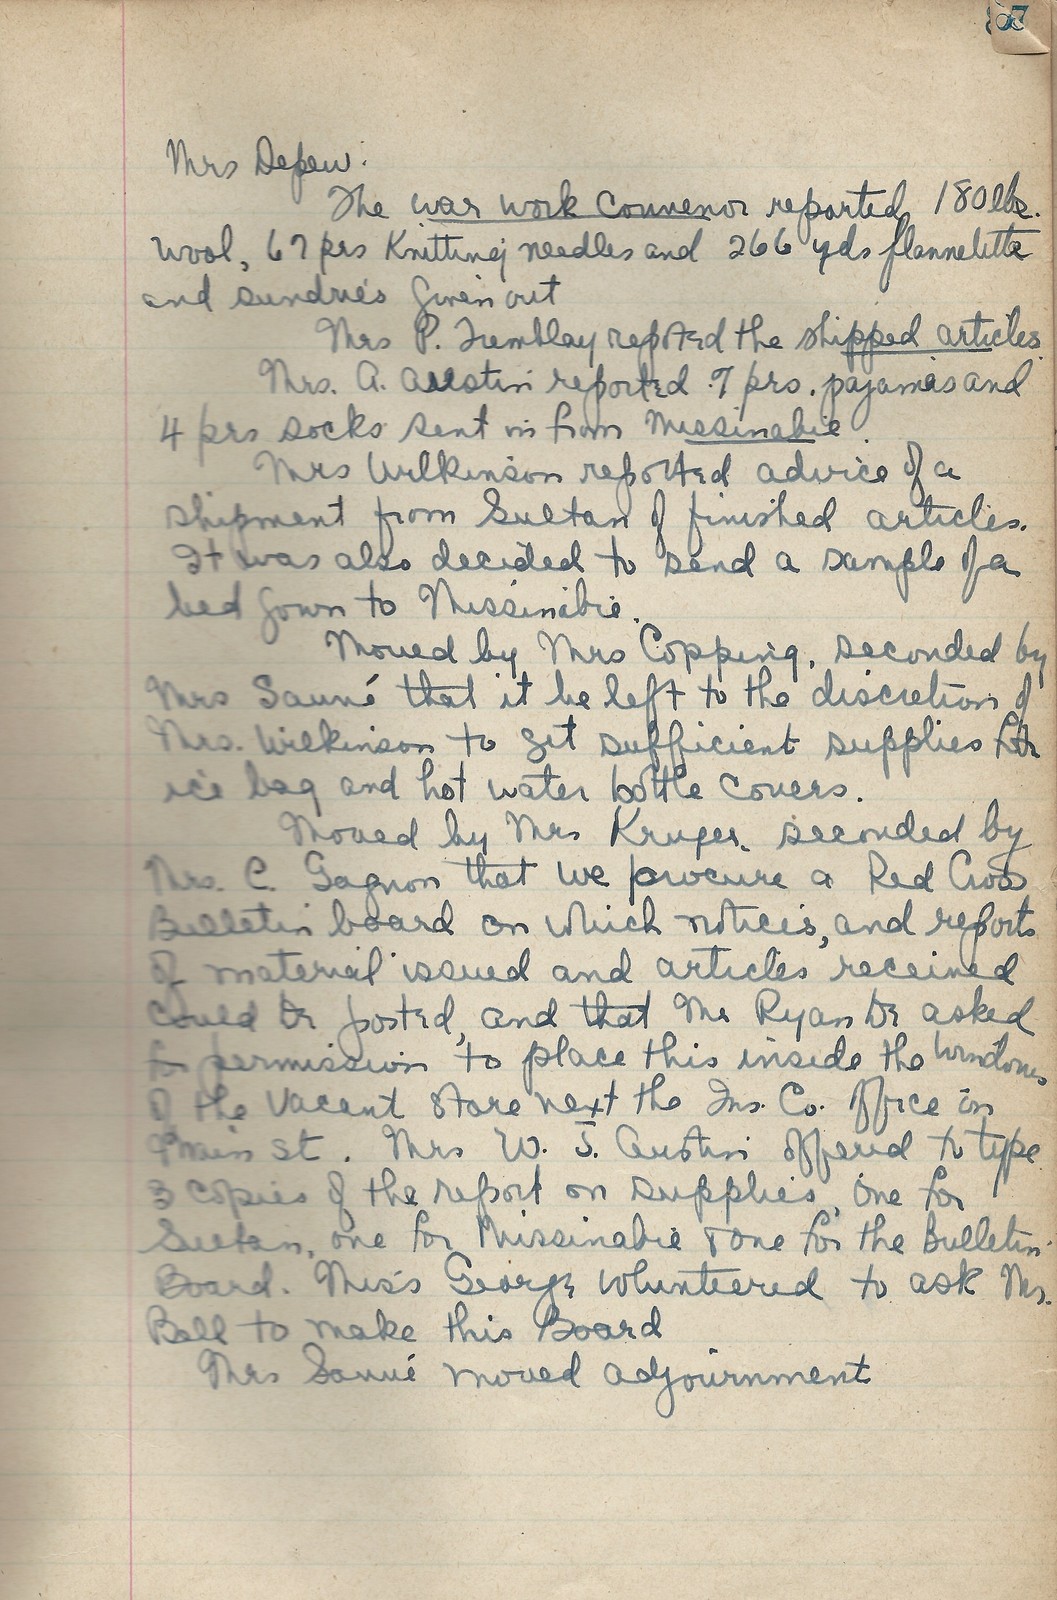 57
Mrs Depew.
The war work Convenor reported 180 lbs.
wool, 67 prs Knitting needles and 266 yds flannelette
and sundries given out
Mrs P. Tremblay reported the shipped articles.
Mrs. A. Austin reported 7 prs. pajamas and
4 prs socks sent in from Missinabie.
Mrs Wilkinson reported advice of a
shipment from Sultan of finished articles.
It was also decided to send a sample of a
bed gown to Missinabie.
Moved by Mrs Copping, seconded by
Mrs Sauvé that it be left to the discretion of
Mrs. Wilkinson to get sufficient supplies for
ice bag and hot water bottle covers.
Moved by Mrs Kruger, seconded by
Mrs. C. Gagnon that we procure a Red Cross
Bulletin board on which notices, and reports
of material issued and articles received
could be posted, and that Mr Ryan be asked
for permission to place this inside the windows
of the vacant store next the Ins. Co. Office on
Main St. Mrs W. J. Austin offered to type
3 copies of the report on supplies, one for
Sultan, one for Missinabie & one for the Bulletin
Board. Miss George volunteered to ask Mr.
Ball to make this Board
Mrs Sauvé moved adjournment